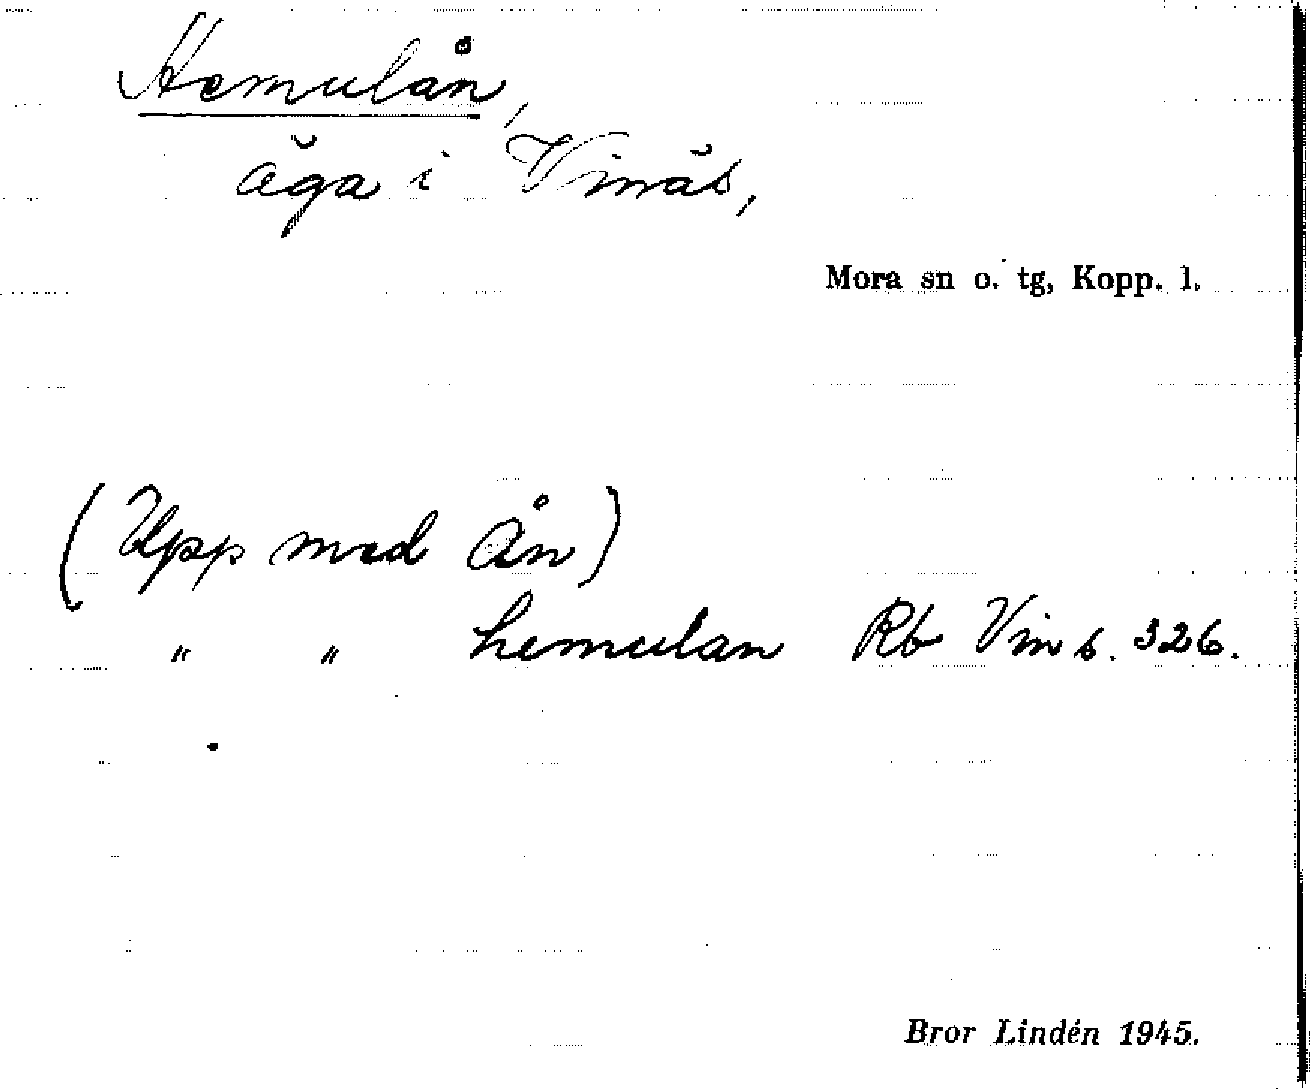 Hemulån,
äga i Vinäs,
Mora sn o. tg, Kopp. l.
(Upp med Ån)
" " hemulan Rb Vin s. 326.
Bror Lindén 1945.